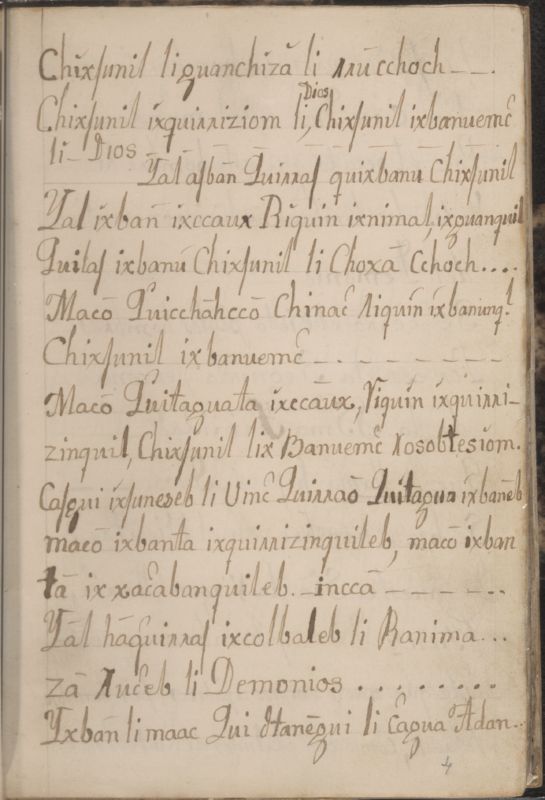 Chixsunil liguanchizā li ʌʌū cchoch _ _.
Chixsunil ixquiʌʌiziom li, Dios Chixsunil ixbanuem̃c
li _ Dios _ _ _ _ _ _
Yāl asbān Quiʌʌas quixbanu Chixsunil
Yal ixbañ ixccaux Riquin ixnimal, ixguanquil
Quilas ixbanū Chixsunil li Choxā Cchoch....
Macō Quicchāhccō Chinac̃ ʌiquin ixbanunql.
Chixsunil ixbanuem̃c _ . _ _ _ _ _ _
Macō Quitaguata ixccāux, Viquin ixquiʌʌi-
zinquil, Chixsunil lix Banuem̃c xosobtesiom.
Casqui ixsuneseb li Vinc̃ Quiʌʌaō Quitagua ixbāneb
macō ixbanta ixquiʌʌizinquileb, macō ixban
tā ix xac̃abanquileb. _ inccā _ _ _ _ _ ..
Yāl hāq̃uiʌʌas ixcolbaleb li Ranima...
zā ʌuc̃eb li Demonios . . . . . . . .
Yxbañ li maac Qui dtanēgui li c̃agua Adan..
4